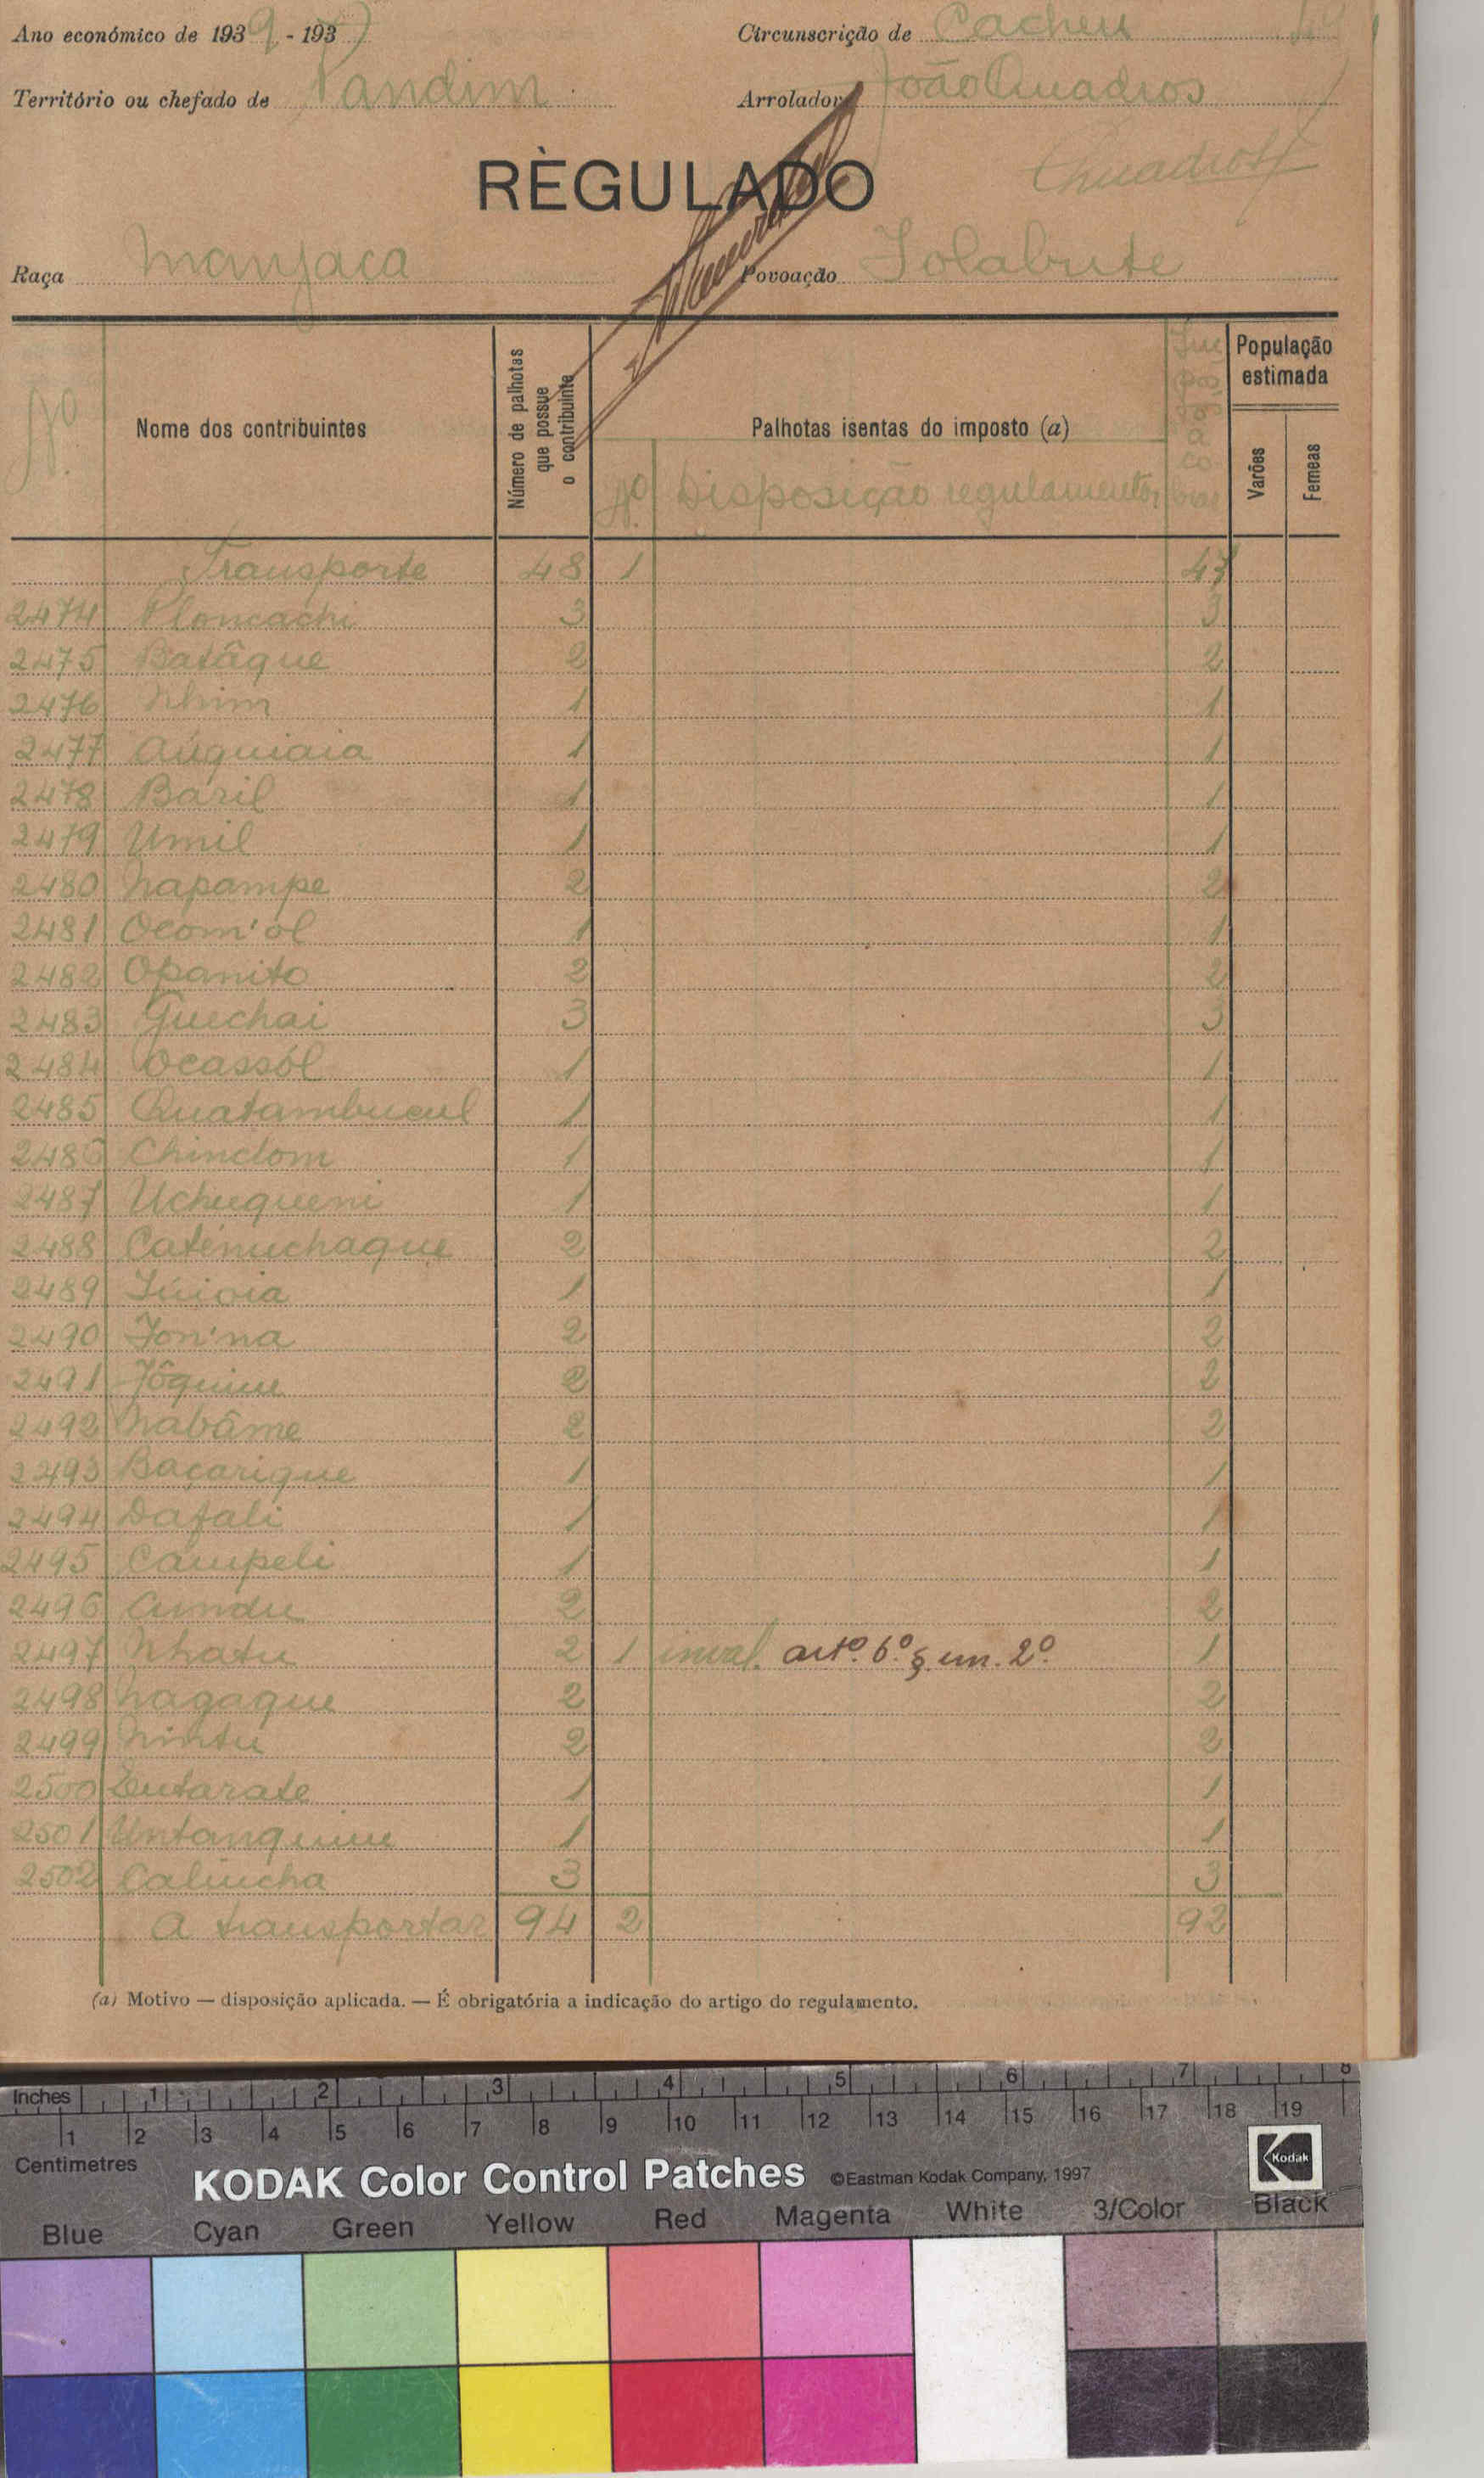 Ano económico de 1939 - 193
Circunscrição de Cacheu
Território ou chefado de Pandim
Arrolador João Quadros
RÈGULADO
Quadros
Raça Manjaca
Povoação Jolabute
Nº
Nome dos contribuintes
Número de palhotas que possue o contribuinte
Palhotas isentas do imposto (a)
Nº Disposição regulamentar
Impostos a cobrar
População estimada
Varões
Femeas
Transporte 48 1 47
2474 Ploncachi 3 3
2475 Batâque 2 2
2476 Nhim 1 1
2477 Aúquiaia 1 1
2478 Báril 1 1
2479 Umil 1 1
2480 Napampe 2 2
2481 Ocom'ol 1 1
2482 Opanito 2 2
2483 Guechai 3 3
2484 Ocassól 1 1
2485 Quatambucul 1 1
2486 Chindom 1 1
2487 Uchuqueni 1 1
2488 Caténuchaque 2 2
2489 Júioia 1 1
2490 Jon'na 2 2
2491 Jôquine 2 2
2492 Nabâme 2 2
2493 Baçarique 1 1
2494 Dafali 1 1
2495 Campeli 1 1
2496 Cundu 2 2
2497 Nhatu 2 1 inval. artº. 6º. § un. 2º 1
2498 Nagaque 2 2
2499 Nintu 2 2
2500 Entarate 1 1
2501 Untanquine 1 1
2502 Caliucha 3 3
A transportar 94 2 92
(a) Motivo — disposição aplicada. — É obrigatória a indicação do artigo do regulamento.
Inches 1 2 3 4 5 6 7 8
1 2 3 4 5 6 7 8 9 10 11 12 13 14 15 16 17 18 19
Centimetres
KODAK Color Control Patches ©Eastman Kodak Company, 1997
Kodak
Blue Cyan Green Yellow Red Magenta White 3/Color Black